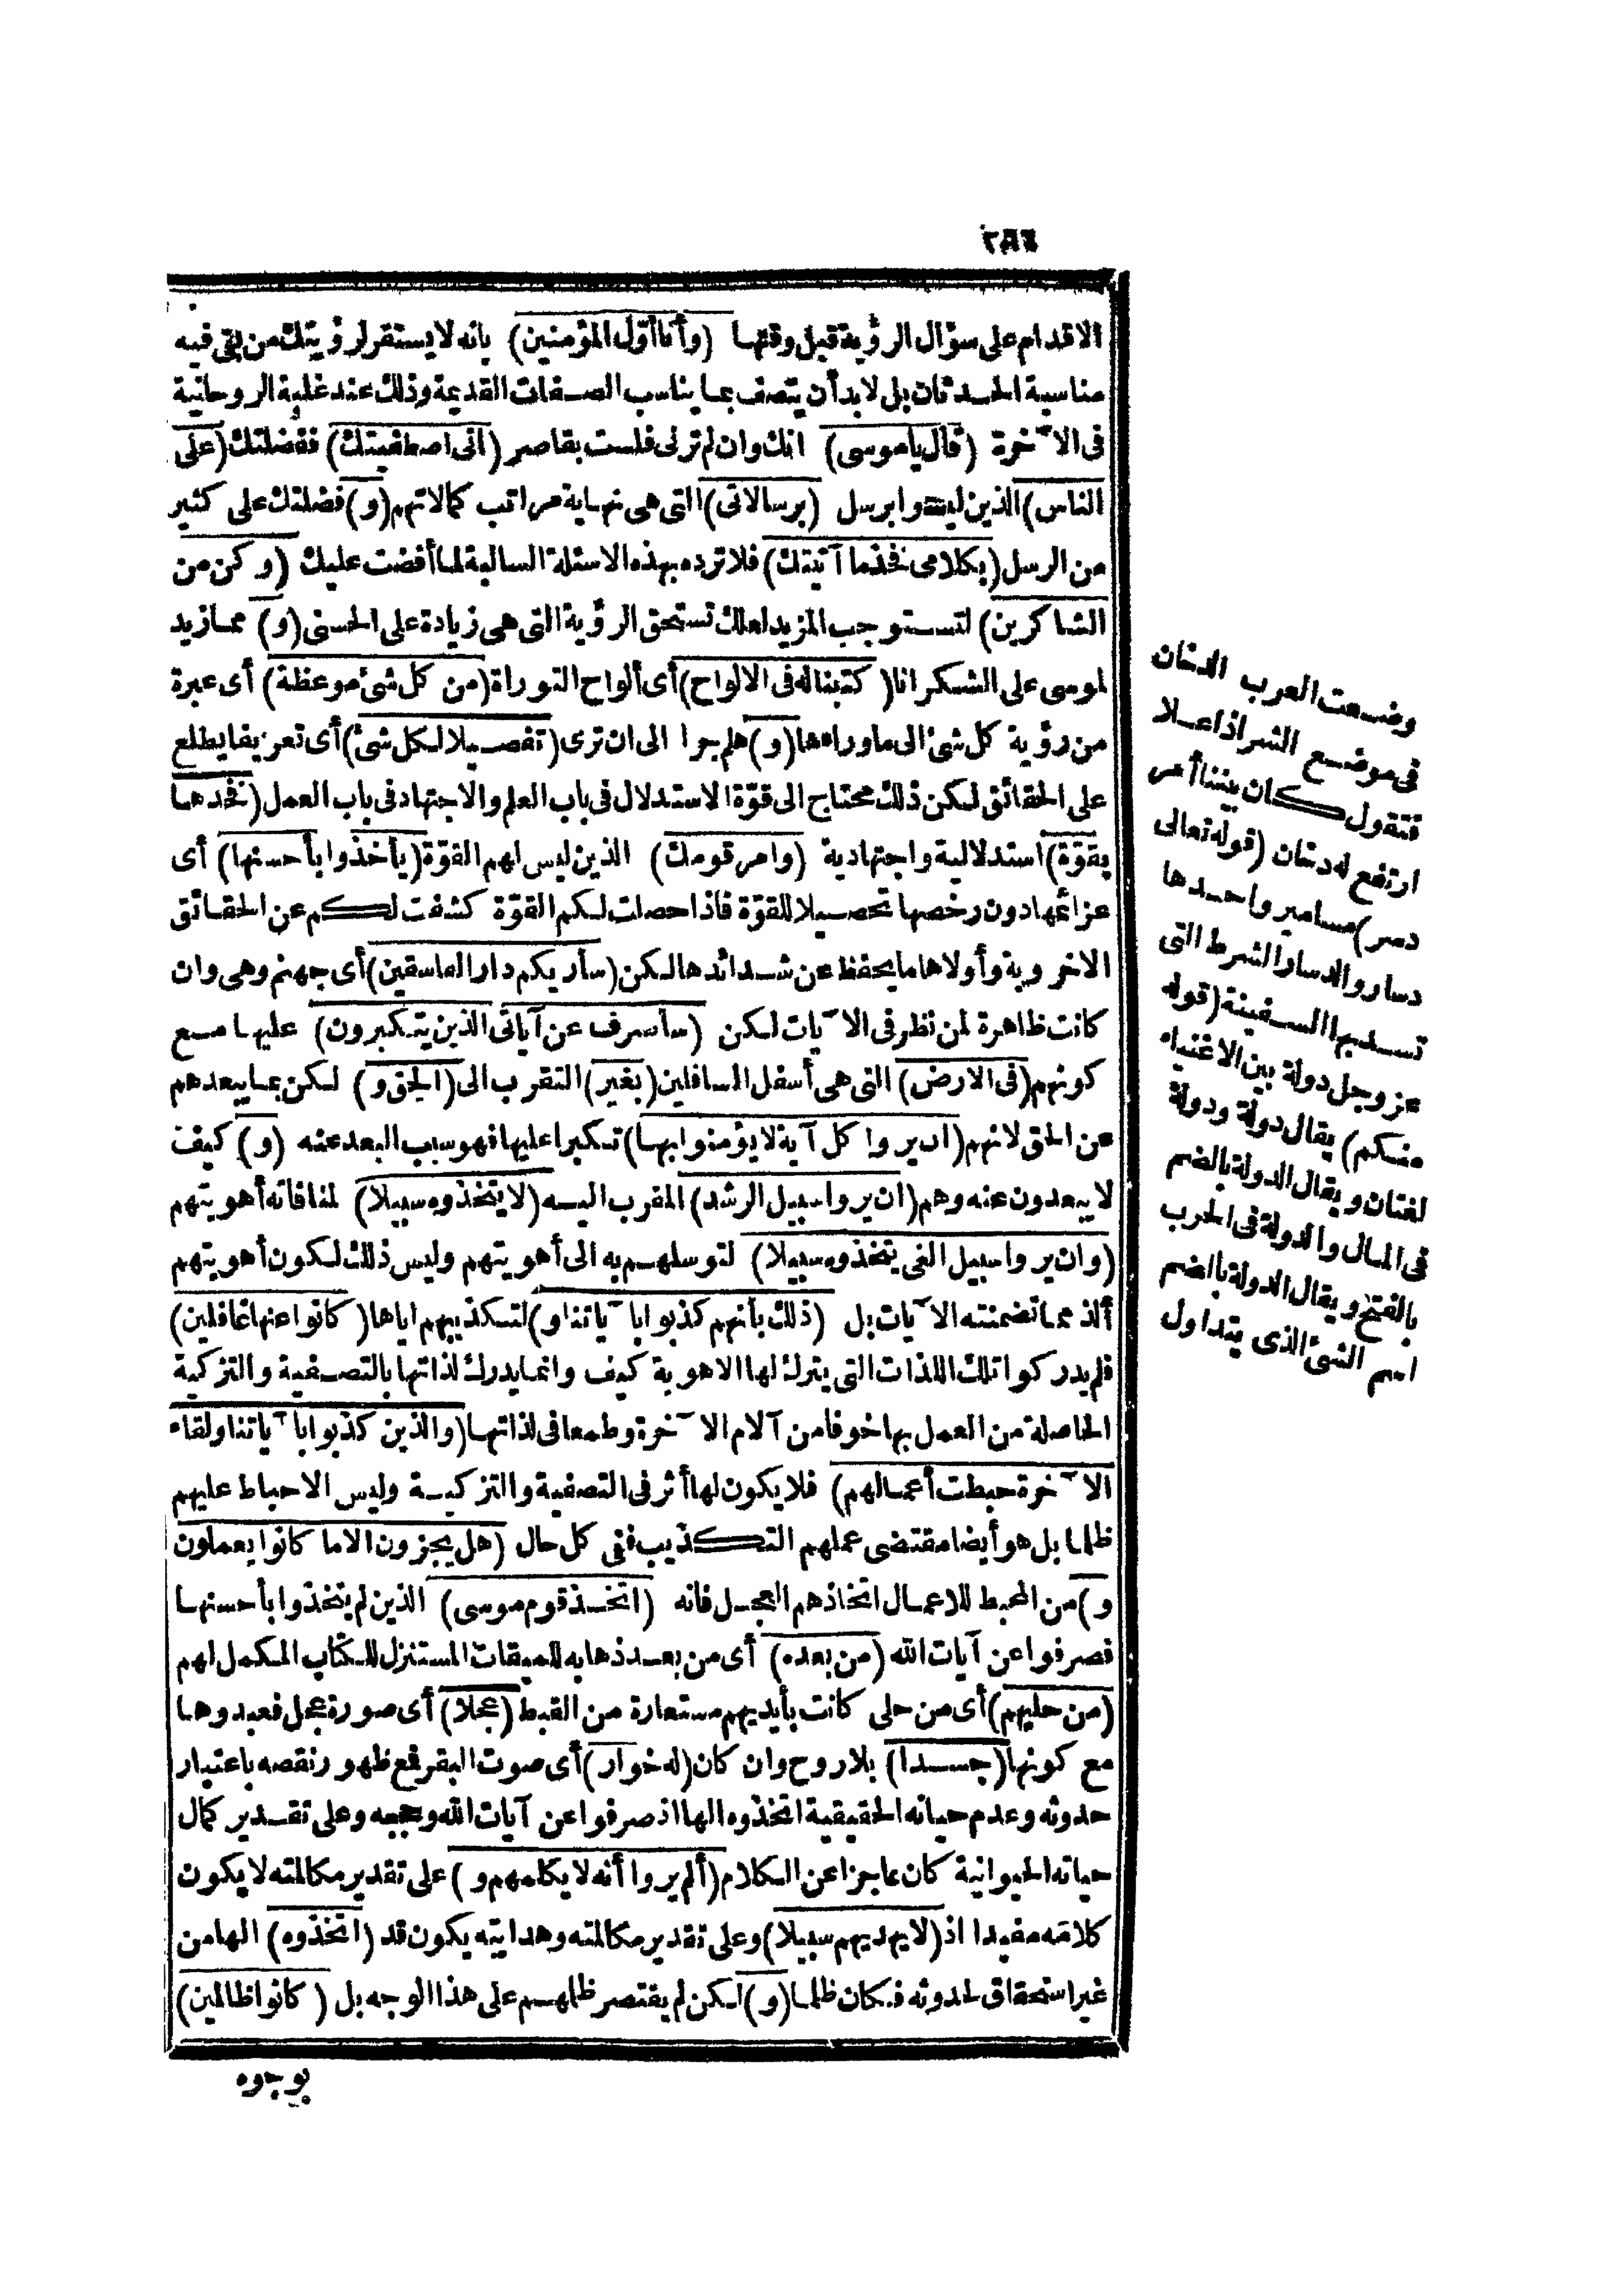 الاقدام على سؤال الرؤية قبل وقتها (وأنا أول المؤمنين) بانه لا يستقر لرؤيتك من بقى فيه
مناسبة الحدثان بل لا بد أن يتصف بما يناسب الصفات القديمة وذلك عند غلبة الروحانية
فى الآخرة (قال ياموسى) انك وان لم ترنى فلست بقاصر (انى اصطفيتك) ففضلتك (على
الناس) الذين ليسوا برسل (برسالاتى) التى هى نهاية مراتب كمالاتهم (و) فضلتك على كثير
من الرسل (بكلامى فخذما آتيتك) فلا ترده بهذه الاسئلة السالبة لما أفضت عليك (وكن من
الشاكرين) لتستوجب المزيد لعلك تستحق الرؤية التى هى زيادة على الحسنى (و) مما زيد
لموسى على الشكر انا (كتبناله فى الالواح) أى ألواح التوراة (من كل شئ موعظة) أى عبرة
من رؤية كل شئ الى ماوراءها (و) هلم جرا الى ان ترى (تفصيلا لكل شئ) أى تعريفا يطلع
على الحقائق لكن ذلك محتاج الى قوّة الاستدلال فى باب العلم والاجتهاد فى باب العمل (فخذها
بقوّة) استدلالية واجتهادية (وامر قومك) الذين ليس لهم القوّة (يأخذوا بأحسنها) أى
عزائمها دون رخصها تحصيلا للقوّة فاذا حصلت لكم القوّة كشفت لكم عن الحقائق
الاخروية وأولاها ما يحفظ عن شدائدها لكن (سأريكم دار الفاسقين) أى جهنم وهى وان
كانت ظاهرة لمن نظر فى الآيات لكن (سأصرف عن آياتى الذين يتكبرون) عليها مع
كونهم (فى الارض) التى هى أسفل السافلين (بغير) التقرب الى (الحق و) لكن بما يبعدهم
عن الحق لانهم (ان يروا كل آية لا يؤمنوا بها) تكبرا عليها فهو سبب البعد عنه (و) كيف
لا يبعدون عنه وهم (ان يروا سبيل الرشد) المقرب اليه (لا يتخذوه سبيلا) لمنافاته أهويتهم
(وان يروا سبيل الغى يتخذوه سبيلا) لتوسلهم به الى أهويتهم وليس ذلك لكون أهويتهم
ألذ مما تضمنته الآيات بل (ذلك بأنهم كذبوا بآياتنا و) لتكذيبهم اياها (كانوا عنها غافلين)
فلم يدركوا تلك اللذات التى يترك لها الاهوية كيف وانما يدرك لذاتها بالتصفية والتزكية
الحاصلة من العمل بها خوفا من آلام الآخرة وطمعا فى لذاتها (والذين كذبوا بآياتنا ولقاء
الآخرة حبطت أعمالهم) فلا يكون لها أثر فى التصفية والتزكية وليس الاحباط عليهم
ظلما بل هو أيضا مقتضى عملهم التكذيب ففى كل حال (هل يجزون الا ما كانوا يعملون
و) من المحبط للاعمال اتخاذهم العجل فانه (اتخذ قوم موسى) الذين لم يتخذوا بأحسنها
فصرفوا عن آيات الله (من بعده) أى من بعد ذهابه للميقات المستنزل للكتاب المكمل لهم
(من حليهم) أى من حلى كانت بأيديهم مستعارة من القبط (عجلا) أى صورة عجل فعبدوها
مع كونها (جسدا) بلا روح وان كان (له خوار) أى صوت البقر فمع ظهور نقصه باعتبار
حدوثه وعدم حياته الحقيقية اتخذوه الها اذ صرفوا عن آيات الله وحججه وعلى تقدير كمال
حياته الحيوانية كان عاجزا عن الكلام (ألم يروا أنه لا يكلمهم و) على تقدير مكالمته لا يكون
كلامه مفيدا اذ (لا يهديهم سبيلا) وعلى تقدير مكالمته وهدايته يكون قد (اتخذوه) الها من
غير استحقاق لحدوثه فكان ظلما (و) لكن لم يقتصر ظلمهم على هذا الوجه بل (كانوا ظالمين)
بوجوه
وضعت العرب الدخان
فى موضع الشر اذا علا
فتقول كان بيننا أمر
ارتفع له دخان (قوله تعالى
دسر) مسامير واحدها
دسار والدسار الشرط التى
تسد بها السفينة (قوله
عز وجل دولة بين الاغنياء
منكم) يقال دولة ودولة
لغتان ويقال الدولة بالضم
فى المال والدولة فى الحرب
بالفتح ويقال الدولة بالضم
اسم الشئ الذى يتداول